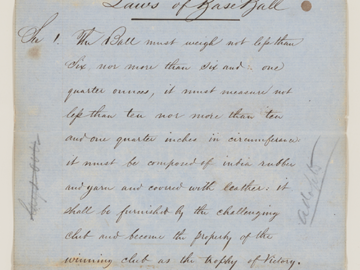 Laws of Base Ball
Sec 1. The Ball must weigh not less than
Six nor more than Six and one
quarter ounces, it must measure not
less than ten nor more than ten
and one quarter inches in circumference.
it must be composed of india rubber
and yarn and covered with leather. it
shall be furnished by the challenging
club and become the property of the
winning club as the trophy of Victory.
adopt